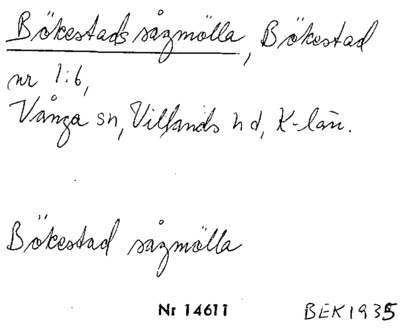 Bökestads sågmölla, Bökestad
nr 1:6,
Vånga sn, Villands hd, K-län.
Bökestad sågmölla
Nr 14611
BEK1935